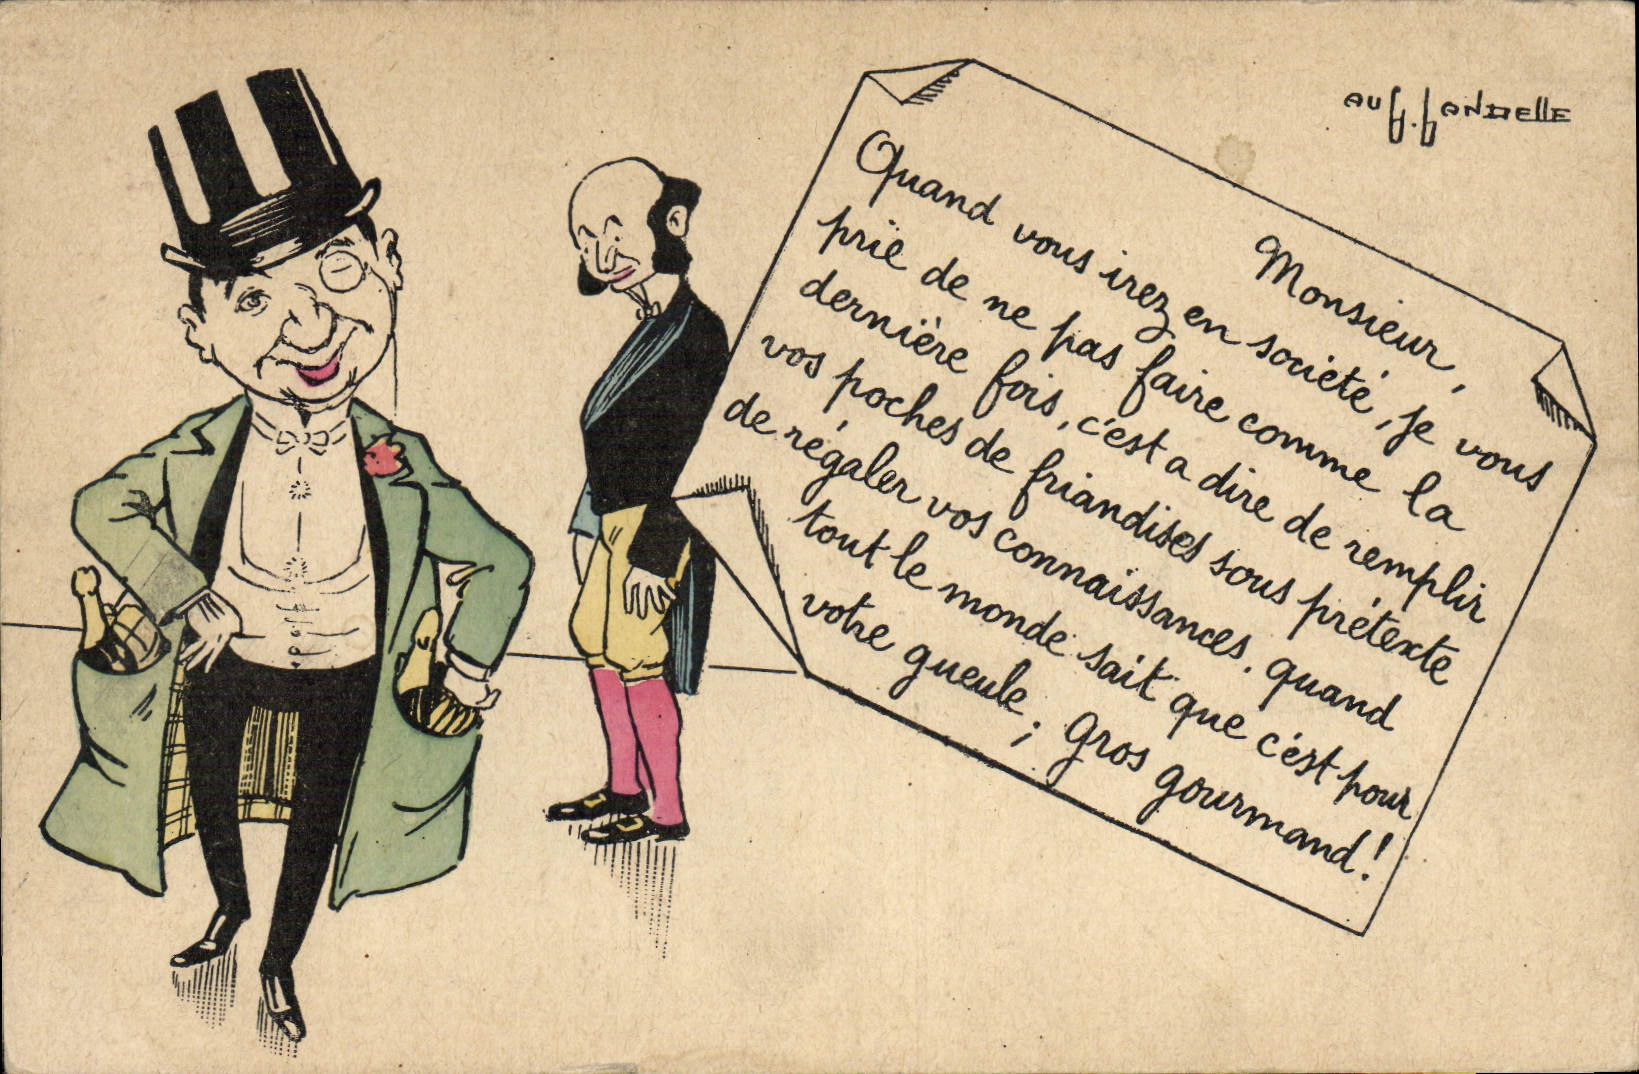 AUG. GANDELLE
Monsieur,
Quand vous irez en société, je vous
prie de ne pas faire comme la
dernière fois, c'est a dire de remplir
vos poches de friandises sous prétexte
de régaler vos connaissances. quand
tout le monde sait que c'est pour
votre gueule; gros gourmand!